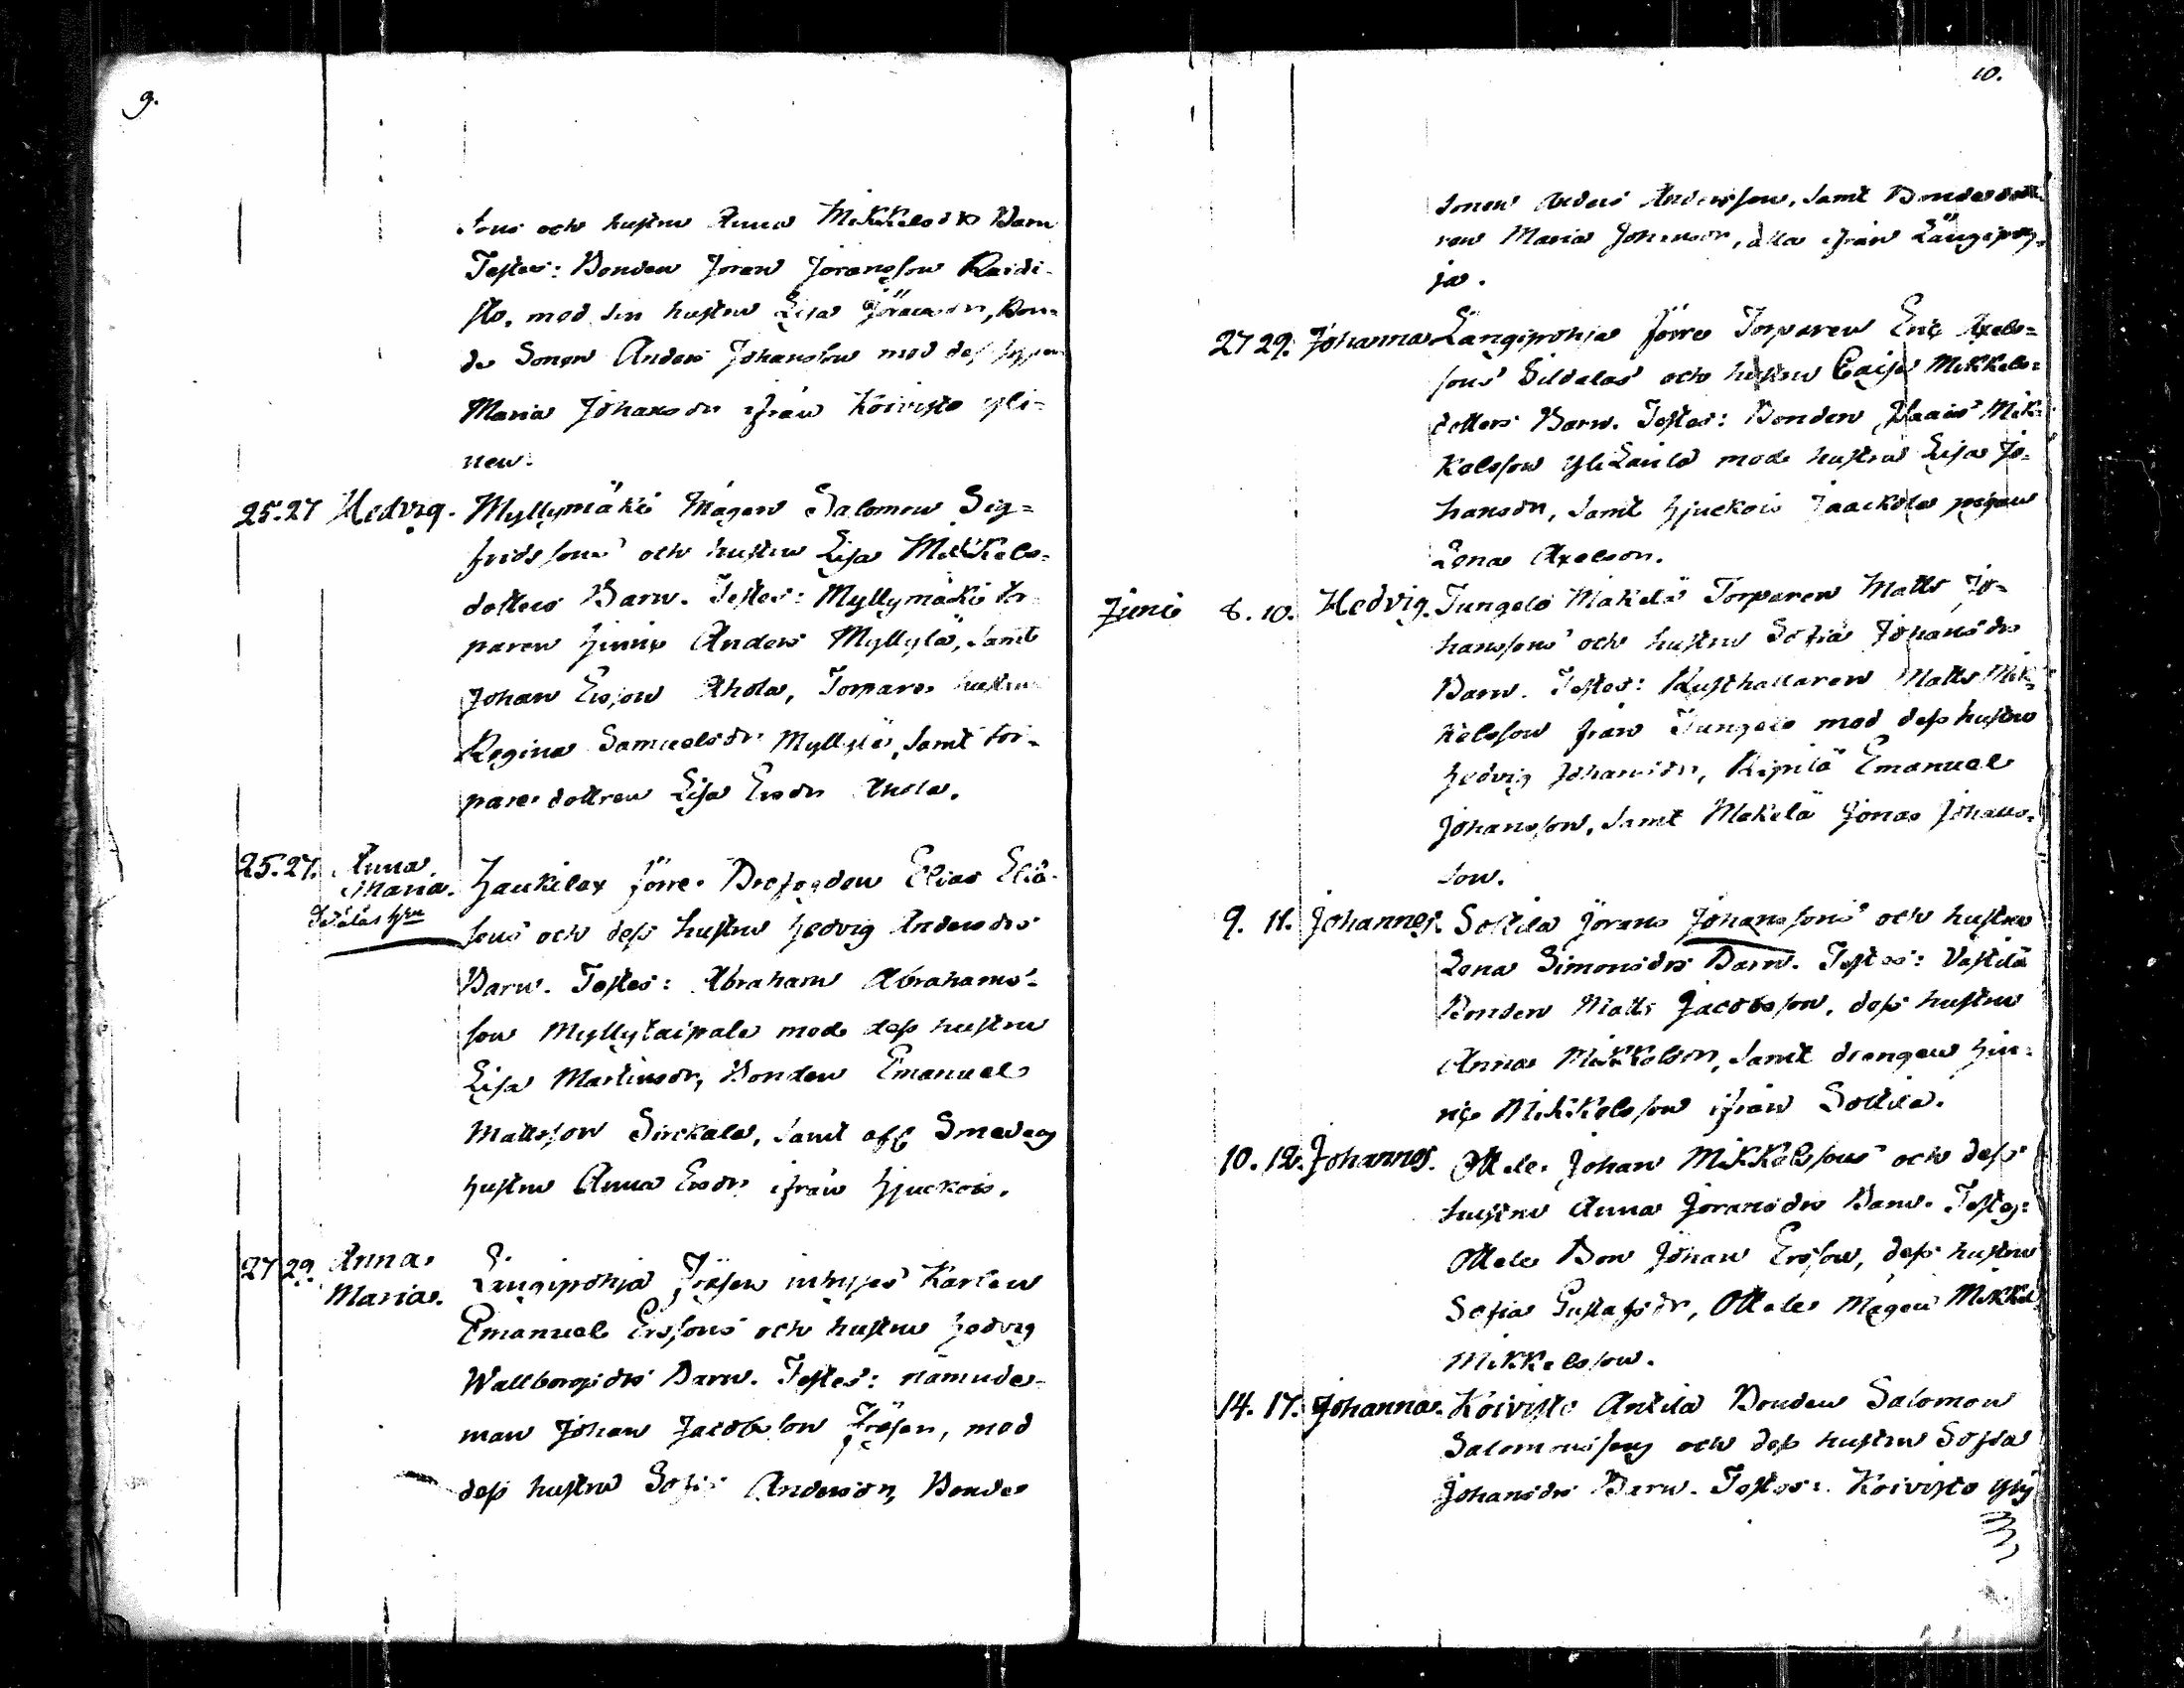 9.
sons och hustru Anna Mikkelsdrs Barn
Testes: Bonden Jöran Jöransson Raidi-
sto, med sin hustru Lisa Jöransdr, Bon-
de Sonen Anders Johansson med dess
Maria Johansdr ifrån Koivisto yli-
nen.
25. 27 Hedvig. Myllymäki Mågen Salomon Sig=
fridssons och hustru Lisa Mikkels-
dotters Barn. Testes: Myllymäki tor-
paren Hinric Anders Myllylä, samt
Johan Ersson Ahola, Torpare hustru
Regina Samuelsdr Myllylä, samt tor-
pare dottren Lisa Ersdr Ahola.
25. 27. Anna
Maria. Haukilax förre Elias Eliæ-
sons och dess hustru Hedvig Andersdrs
Barn. Testes: Abraham Abrahams-
son Myllytaipale med dess hustru
Lisa Martinsdr, Bonden Emanuel
Mattsson Sirckala, samt afl Smedens
hustru Anna Ersdr ifrån Hjuckois.
27 29. Anna
Maria. Längipohja inhyses Karlen
Emanuel Erssons och hustru Hedvig
Wallborgsdrs Barn. Testes: nämnde-
man Johan Jacobsson med
dess hustru Sofia Andersdr, Bonde
10.
sonen Anders Andersson, samt Bondedott-
ren Maria Johansdr, alla ifrån Längipoh-
ja.
27 29. Johanna Längipohja förre Torparen Eric Axels=
sons Sildalas och hustru Caisa Mikkels=
dotters Barn. Testes: Bonden Mik-
kelsson YliLaurila med hustru Lisa Jo-
hansdr, samt Hjuckois Jaackola pigan
Lena Axelsdr.
Junii 8. 10. Hedvig. Jungelo Mäkelä Torparen Matts Jo-
hanssons och hustru Sofia Johansdrs
Barn. Testes: Rusthallaren Matts Mik-
kelsson från Jungelo med dess hustru
Hedvig Johansdr, Ripilä Emanuel
Johansson, samt Mäkelä Jonas Johans-
son.
9. 11. Johannes. Sottila Jörans Johanssons och hustru
Lena Simonsdrs Barn. Testes: Vastilä
Bonden Matts Jacobsson, dess hustru
Anna Mikkelsdr, samt drengen Hin-
ric Mikkelsson ifrån Sottila.
10. 12. Johannes. Ottele Johan Mikkelssons och dess
hustru Anna Jöransdrs Barn. Testes:
Ottele Bon Johan Ersson, dess hustru
Sofia Gustafsdr, Ottele Mågen Mikkel
Mikkelsson.
14. 17. Johanna. Koivisto Antila Bonden Salomon
Salomonssons och dess hustru Sofia
Johansdrs Barn. Testes: Koivisto Yli